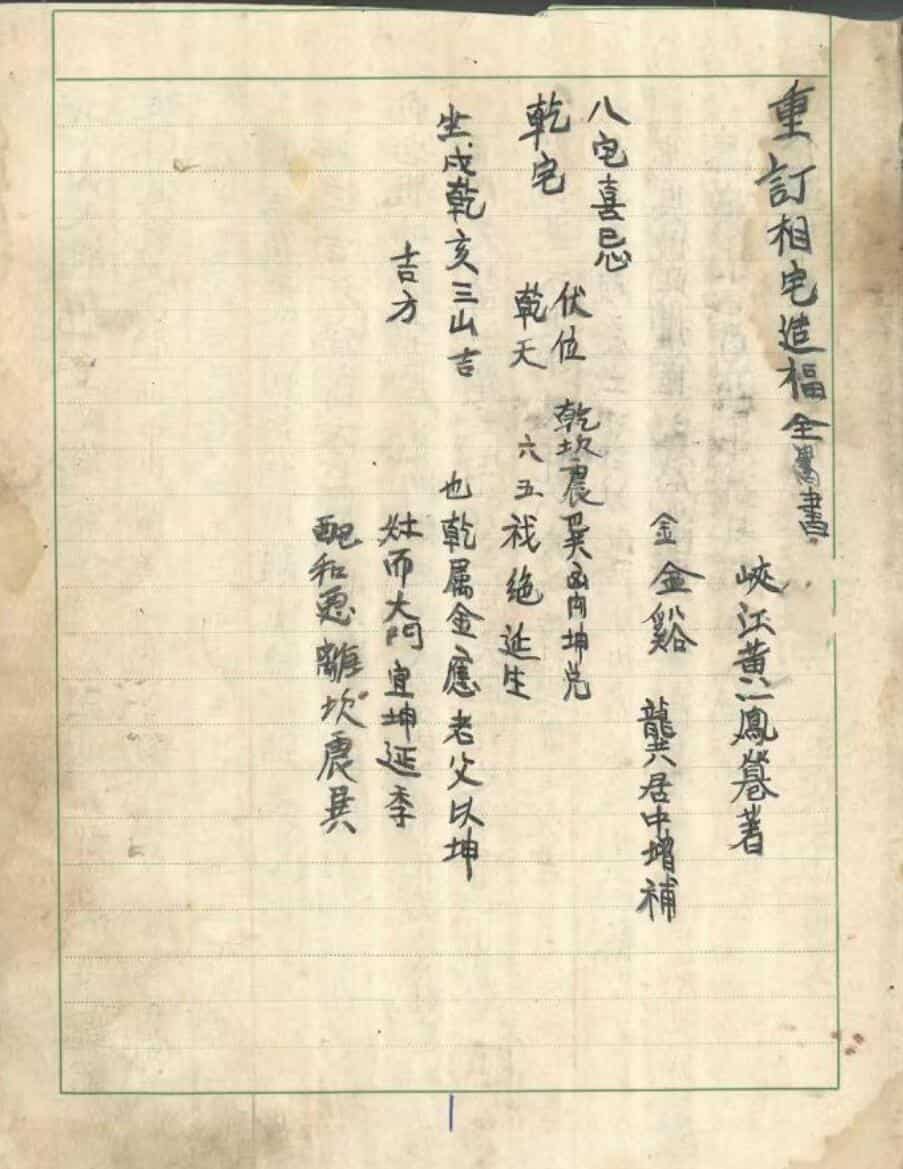 重訂相宅造福全書
峽江黃一鳳著
金 金谿 龔居中增補
八宅喜忌
伏位 乾坎震巽離坤兌
乾宅 乾天 六五祸绝延生
坐戍乾亥三山吉 也乾属金應老父以坤
吉方 灶而大門宜坤延季
配和忌離坎震巽